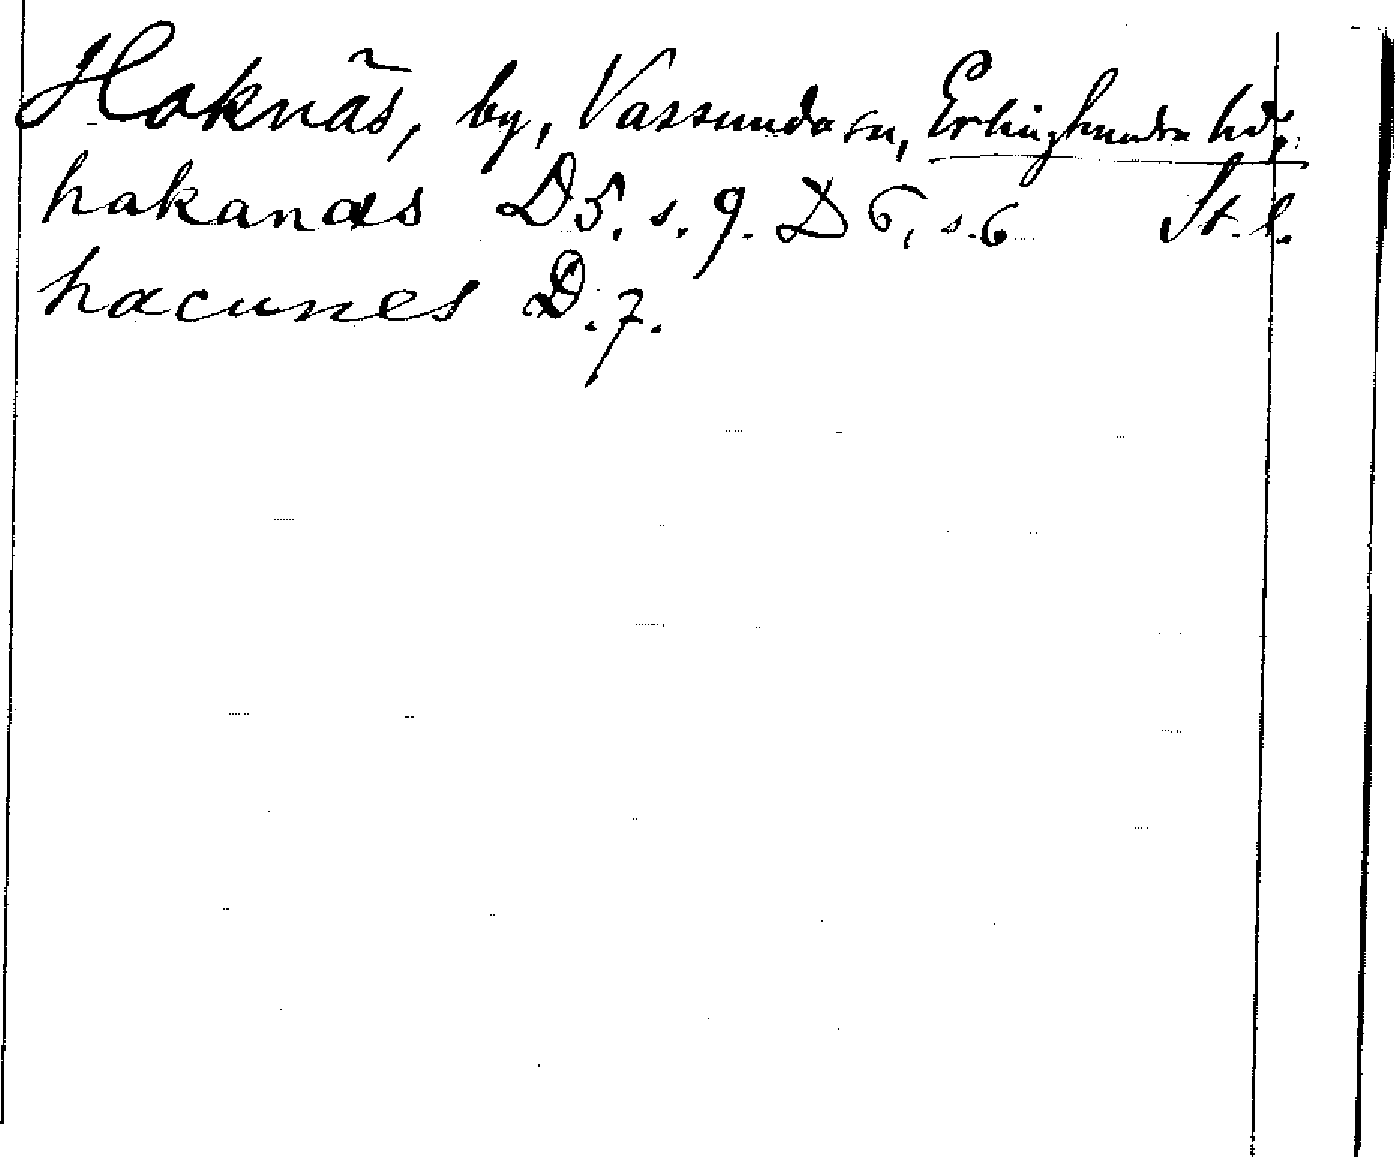 Haknäs, by, Vassunda sn, Erlinghundra hd.
hakanæs D5. s. 9. D 6, s. 6 St. l.
hacunes D. 7.